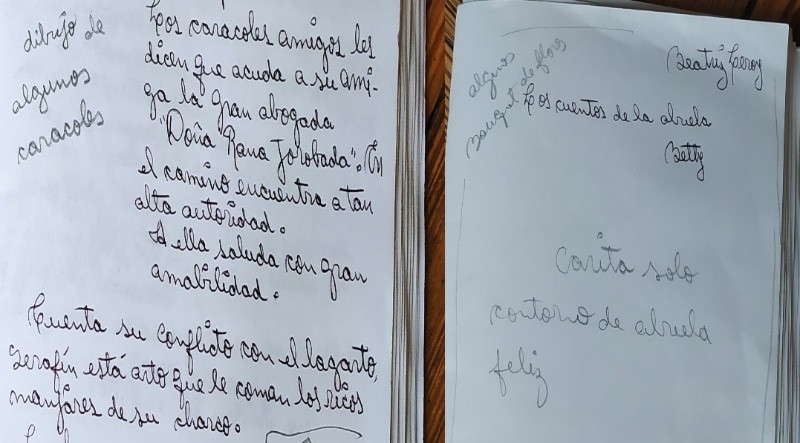 dibujo de
algunos
caracoles
Los caracoles amigos les
dicen que acuda a su ami-
ga la gran abogada
"Doña Rana Jorobada". En
el camino encuentra a tan
alta autoridad.
A ella saluda con gran
amabilidad.
Cuenta su conflicto con el lagarto,
Serafín está arto que le coman los ricos
manjares de su charco.
Beatriz Leroy
algunos
Bouquet de flors
Los cuentos de la abuela
Betty
Carita solo
contorno de abuela
feliz